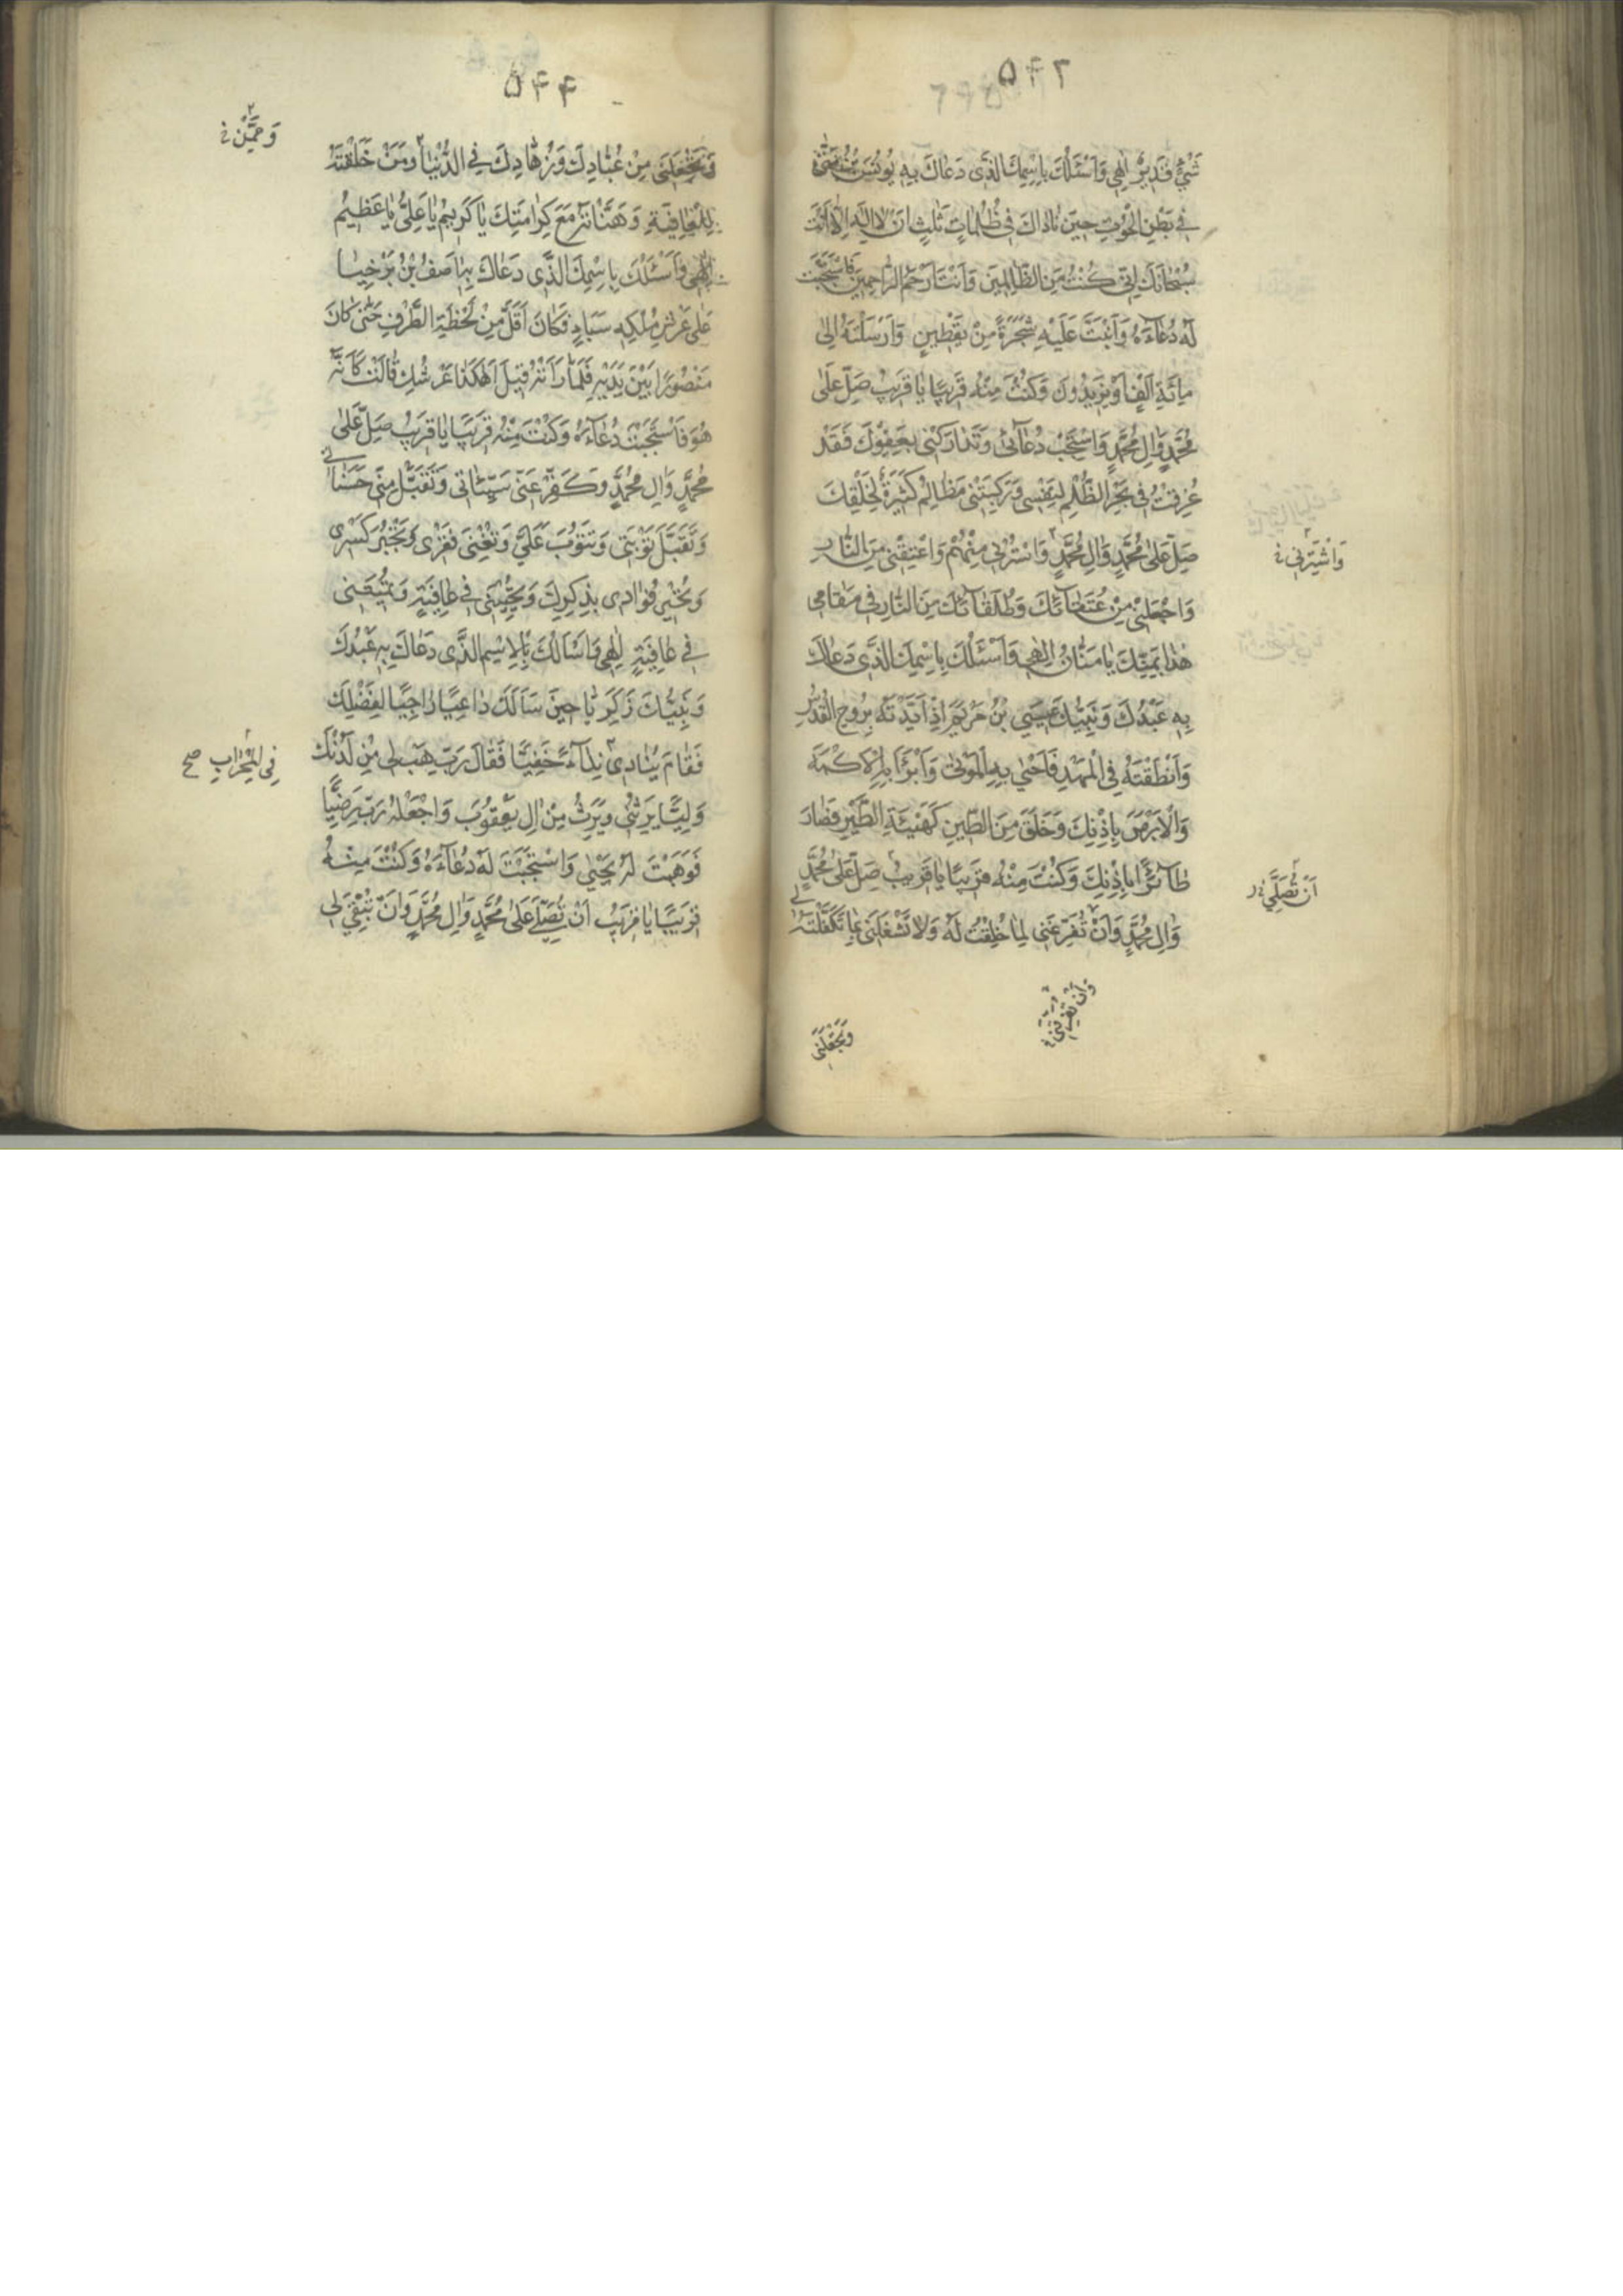 ۵۴۳
شَیْءٍ قَدیرٌ اِلٰهی وَاَسْئَلُكَ بِاسْمِكَ الَّذی دَعاكَ بِهِ یُونُسُ بْنُ مَتّیٰ
فی بَطْنِ الْحُوتِ حینَ ناداكَ فی ظُلُماتٍ ثَلٰثٍ اَنْ لا اِلٰهَ اِلّا اَنْتَ
سُبْحانَكَ اِنّی كُنْتُ مِنَ الظّالِمینَ وَاَنْتَ اَرْحَمُ الرّاحِمینَ فَاسْتَجَبْتَ
لَهُ دُعاءَهُ وَاَنْبَتَّ عَلَیْهِ شَجَرَةً مِنْ یَقْطینٍ وَاَرْسَلْتَهُ اِلیٰ
مِائَةِ اَلْفٍ اَوْ یَزیدُونَ وَكُنْتَ مِنْهُ قَریبًا یا قَریبُ صَلِّ عَلیٰ
مُحَمَّدٍ وَاٰلِ مُحَمَّدٍ وَاسْتَجِبْ دُعائی وَتَدارَكْنی بِعَفْوِكَ فَقَدْ
غَرِقْتُ فی بَحْرِ الظُّلْمِ لِنَفْسی وَرَكِبَتْنی مَظالِمُ كَثیرَةٌ لِخَلْقِكَ
صَلِّ عَلیٰ مُحَمَّدٍ وَاٰلِ مُحَمَّدٍ وَاسْتُرْنی مِنْهُمْ وَاعْتِقْنی مِنَ النّارِ
وَاشْتَرِنی
وَاجْعَلْنی مِنْ عُتَقائِكَ وَطُلَقائِكَ مِنَ النّارِ فی مَقامی
هٰذا بِمَنِّكَ یا مَنّانُ اِلٰهی وَاَسْئَلُكَ بِاسْمِكَ الَّذی دَعاكَ
بِهِ عَبْدُكَ وَنَبِیُّكَ عیسَی بْنُ مَرْیَمَ اِذْ اَیَّدْتَهُ بِرُوحِ الْقُدُسِ
وَاَنْطَقْتَهُ فِی الْمَهْدِ فَاَحْییٰ بِهِ الْمَوْتیٰ وَاَبْرَأَ بِهِ الْاَكْمَهَ
وَالْاَبْرَصَ بِاِذْنِكَ وَخَلَقَ مِنَ الطّینِ كَهَیْئَةِ الطَّیْرِ فَصارَ
طائِرًا بِاِذْنِكَ وَكُنْتَ مِنْهُ قَریبًا یا قَریبُ صَلِّ عَلیٰ مُحَمَّدٍ
اَنْ تُصَلِّیَ
وَاٰلِ مُحَمَّدٍ وَاَنْ تُفَرِّغَنی لِما خُلِقْتُ لَهُ وَلا تَشْغَلَنی بِما تَكَفَّلْتَهُ لی
وَتَجْعَلَنی
۵۴۴
وَتَجْعَلَنی مِنْ عُبّادِكَ وَزُهّادِكَ فِی الدُّنْیا وَمَنْ خَلَقْتَهُ
وَمِمَّنْ
لِلْعافِیَةِ وَهَنَّأْتَهُ مَعَ كَرامَتِكَ یا كَریمُ یا عَلِیُّ یا عَظیمُ
اِلٰهی وَاَسْئَلُكَ بِاسْمِكَ الَّذی دَعاكَ بِهِ اٰصِفُ بْنُ بَرْخِیا
عَلیٰ عَرْشِ مَلِكَةِ سَبَاٍ فَكانَ اَقَلَّ مِنْ لَحْظَةِ الطَّرْفِ حَتّیٰ كانَ
مُتَصَوِّرًا بَیْنَ یَدَیْهِ فَلَمّا رَاَتْهُ قیلَ اَهٰكَذا عَرْشُكِ قالَتْ كَاَنَّهُ
هُوَ فَاسْتَجَبْتَ دُعاءَهُ وَكُنْتَ مِنْهُ قَریبًا یا قَریبُ صَلِّ عَلیٰ
مُحَمَّدٍ وَاٰلِ مُحَمَّدٍ وَكَفِّرْ عَنّی سَیِّئاتی وَتَقَبَّلْ مِنّی حَسَناتی
وَتَقَبَّلْ تَوْبَتی وَتَتُوبَ عَلَیَّ وَتُغْنِیَ فَقْری وَتَجْبُرَ كَسْری
وَتُحْیِیَ فُؤادی بِذِكْرِكَ وَتُحْیِیَنی فی عافِیَةٍ وَتُمیتَنی
فی عافِیَةٍ اِلٰهی وَاَسْاَلُكَ بِالْاِسْمِ الَّذی دَعاكَ بِهِ عَبْدُكَ
وَنَبِیُّكَ زَكَرِیّا حینَ سَاَلَكَ داعِیًا راجِیًا لِفَضْلِكَ
فَقامَ یُنادی نِداءً خَفِیًّا فَقالَ رَبِّ هَبْ لی مِنْ لَدُنْكَ
فِی الْمِحْرابِ صح
وَلِیًّا یَرِثُنی وَیَرِثُ مِنْ اٰلِ یَعْقُوبَ وَاجْعَلْهُ رَبِّ رَضِیًّا
فَوَهَبْتَ لَهُ یَحْییٰ وَاسْتَجَبْتَ لَهُ دُعاءَهُ وَكُنْتَ مِنْهُ
قَریبًا یا قَریبُ اَنْ تُصَلِّیَ عَلیٰ مُحَمَّدٍ وَاٰلِ مُحَمَّدٍ وَاَنْ تُبْقِیَ لی